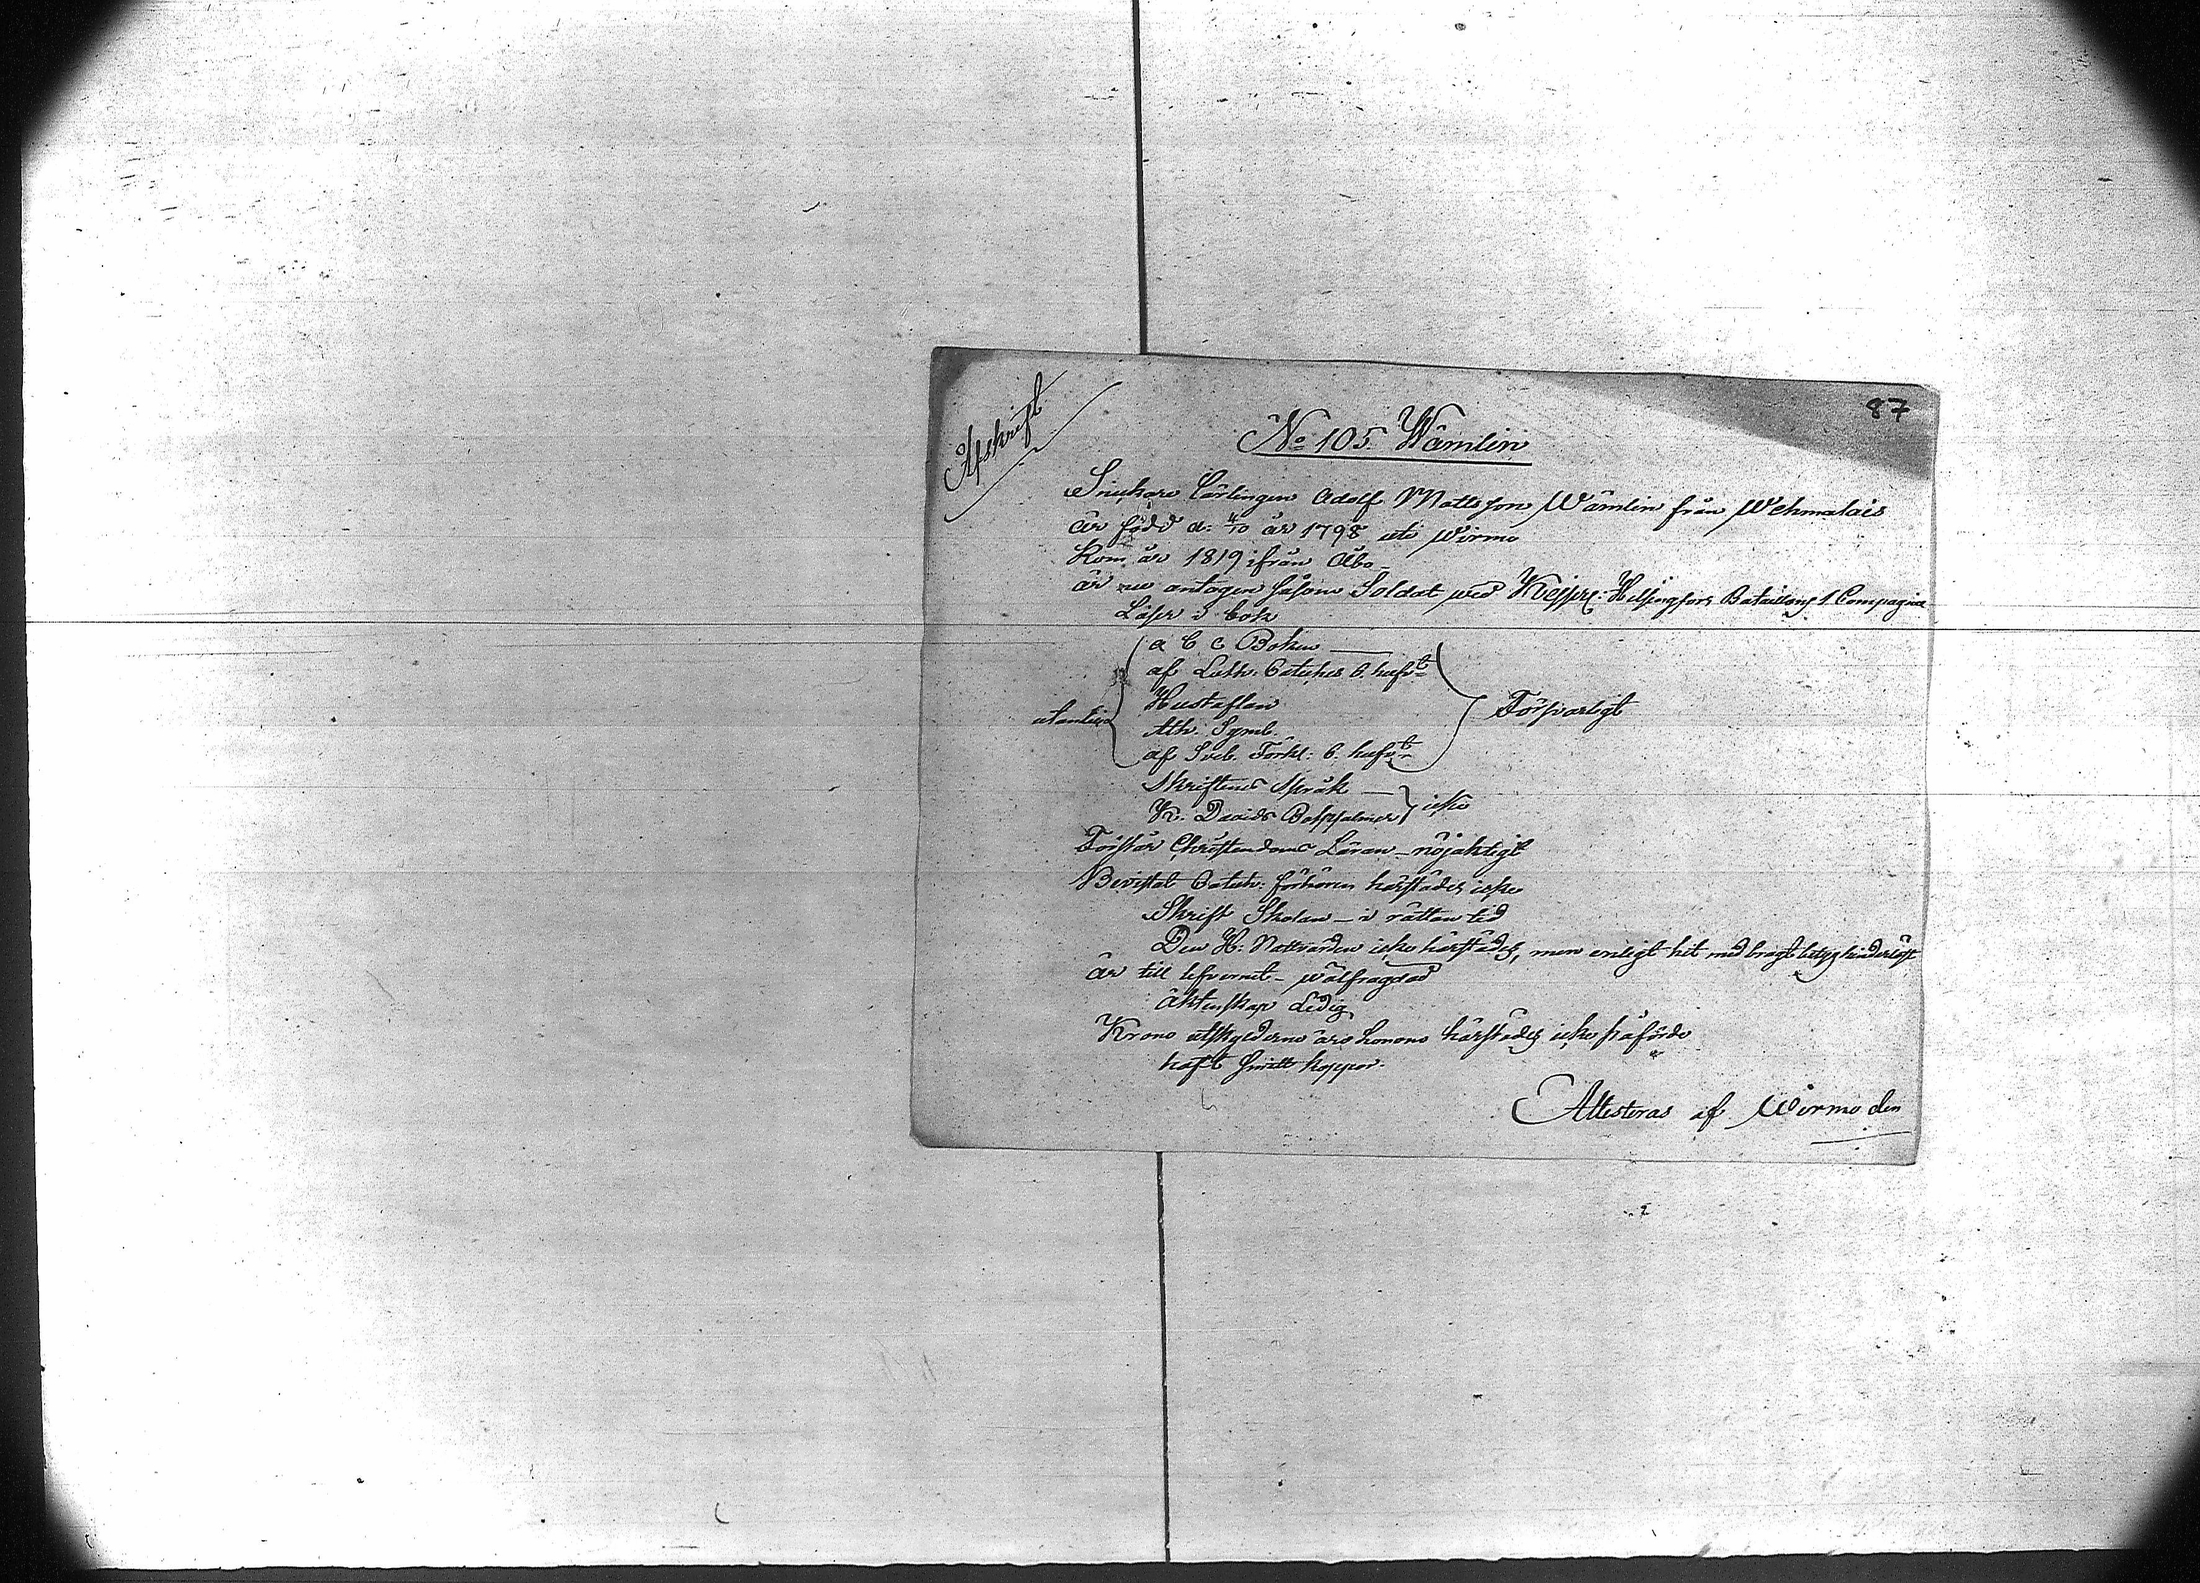 87
Afskrift
No 105. Wämlin
Snickare Lärlingen Adolf Mattsson Wämlin från Wehmalais
är född d: 4/10 år 1798 uti Wirmo
Kom år 1819 ifrån Åbo
är nu antagen såsom Soldat wid Kejsrl: Helsingfors Bataillons 1 Compagnie
Läser i bok
a b c Boken
af Luth. Cateches 6. hufst
Hustaflan
utantill
Förswarligt
Ath. Symb.
af Sveb. Förkl: 6. hufst
Skriftenes språk
K. Davids Botpsalmer
icke
Förstår Christendoms Läran nöjaktigt
Bevistat Catech: förhören härstädes icke
Skrift Skolan i rättan tid
Den H: Nattvarden icke härstädes, men enligt hit medbragt betyg hinderlöst
är till lefvernet wälfragdad
äktenskap Ledig
Krono utskylderne äro honom härstädes icke påförde
haft Smitt koppor.
Attesteras af Wirmo den